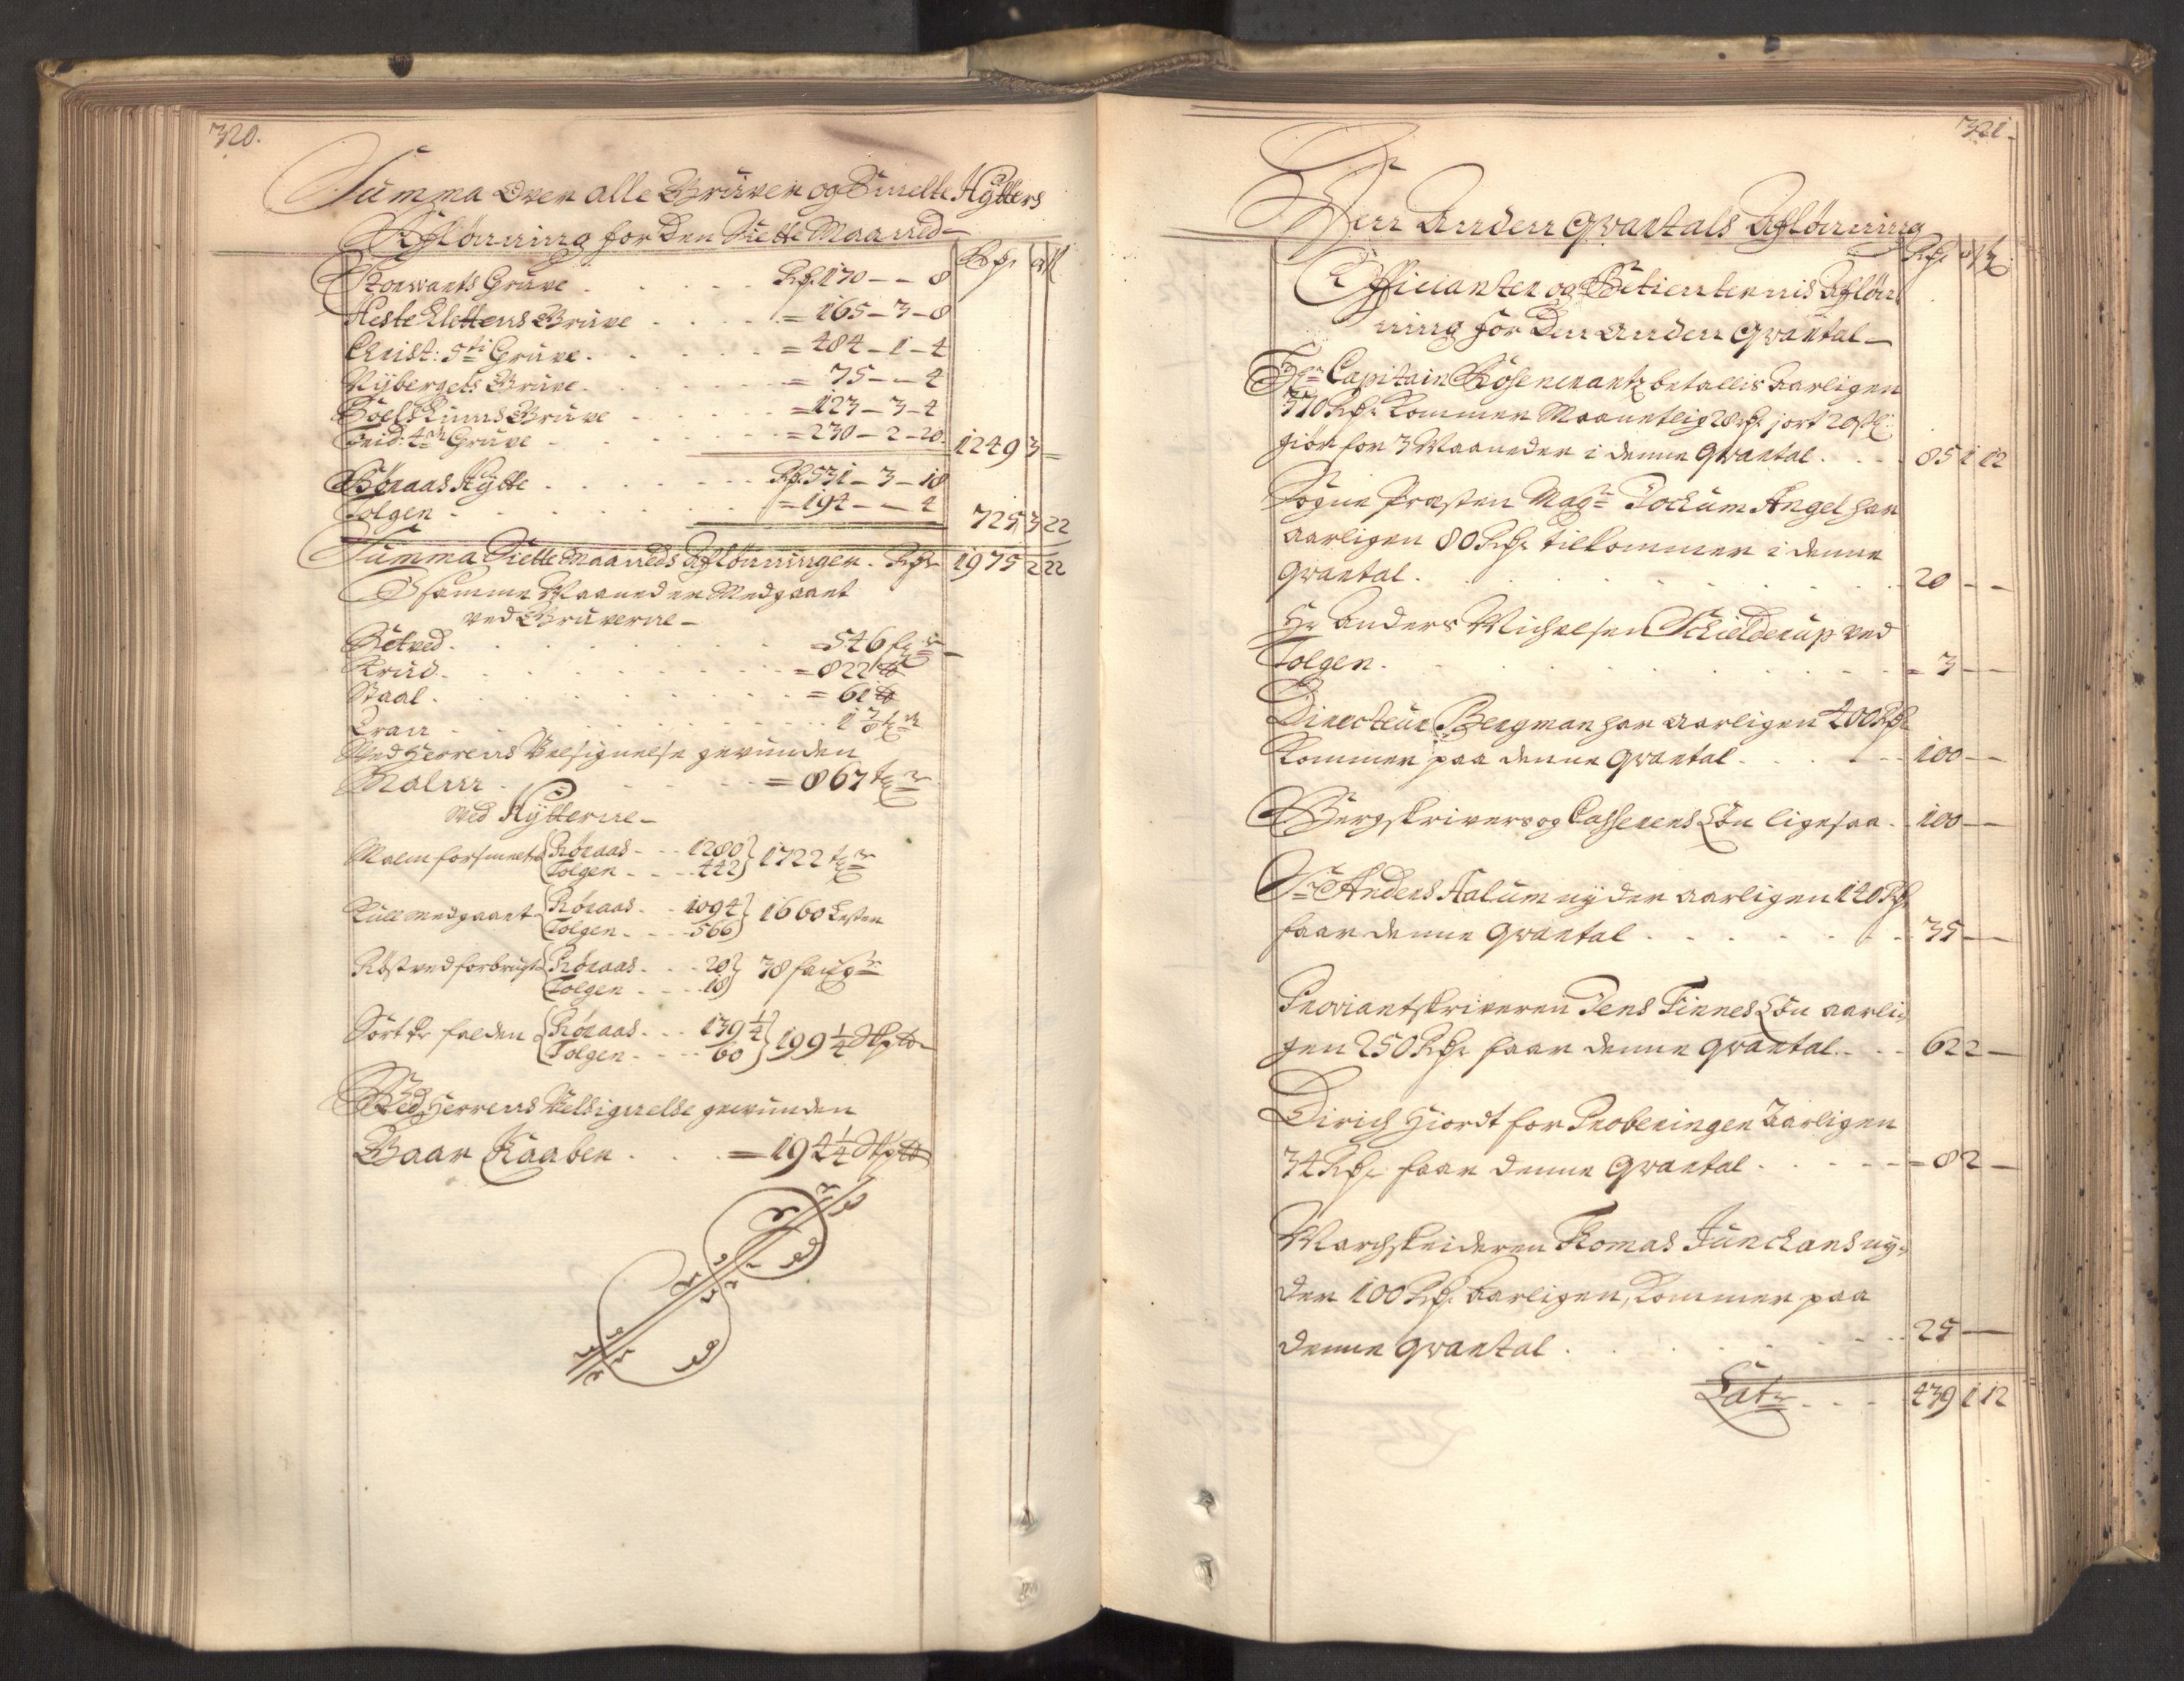 320.
Summa Over alle Gruver og Smelte Hytters
Afløning for den Siette Maaned
Rdr ort ß
Storwarts Gruve . . . . Rdr 170 – – 8
Heste Klettens Gruve . . . = 165 – 3 – 8
Christ: 5ti Gruve . . . . = 484 – 1 – 4
Nybergets Gruve . . . . = 75 – – 4
Gruve . . . . = 123 – 3 – 4
Frid: 4ti Gruve . . . . = 230 – 2 – 20 1249 3 –
Røraas Hytte . . . . Rdr 531 – 3 – 18
Tolgen . . . . = 194 – – 4 725 3 22
Summa Siette Maaneds Afløninger . Rdr 1975 2 22
I samme Maaned er Medgaaet
ved Gruverne –
Setved . . . . = 546 f
Krud . . . . = 822 ℔
Staal . . . . = 61 ℔
Tran . . . .
Ved Herrens Velsignelse gevunden
Malm . . . . = 867 t
Ved Hytterne –
Malm forsmelt Røraas – – 1280 1722 t
Tolgen – – 442
Kull medgaaet Røraas – – 1094 1660 Lester
Tolgen – – 566
Røstved forbrugt Røraas – – 20 38 faugr
Tolgen – – 18
Sort K falden Røraas – – 139¼ 199¼ S℔
Tolgen – – 60
Ved Herrens Velsignelse gevunden
Gaar Kaaber . . . = 194¼ S℔
321.
Herr Anden Qvartals Afløning
Rdr ort ß
Officianter og Betienternis Afløn
ning for den anden Qvartal –
Hr Capitain Rosencrantz betallis Aarligen
Rdr kommer Maanetlig 28 Rdr 1 ort 20 ß
giør for 3 Maaneder i denne Qvartal . . . 85 1 12
Sogne Præsten Magr Jochum Angel har
aarligen 80 Rdr tilkommer i denne
Qvartal . . . . 20 – –
Hr Anders Michelsen Schielderup ved
Tolgen . . . . = 3 – –
Directeur Bergman har aarligen 400 Rdr
kommer paa denne Qvartal . . . . 100 – –
Bergskriver og Casserens Løn ligesaa . 100 – –
Sr Anders Aalum nyder aarligen 140 Rdr
faar denne Qvartal . . . . 35 – –
Proviantskriveren Jens Finnes Løn aarli=
gen 250 Rdr faar denne Qvartal . . . 62 2 –
Dirich Hiordt for Proberingen Aarligen
34 Rdr faar denne Qvartal . . . . = 8 2 –
Marchskeideren Tomas Junchans ny=
der 100 Rdr Aarligen, kommer paa
denne Qvartal . . . . 25 – –
Latr . . . 439 1 12